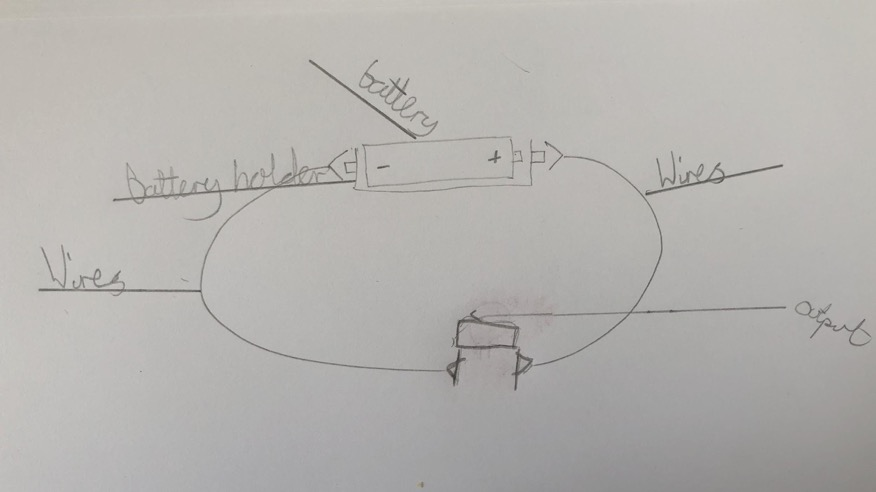 battery
- +
Battery holder
Wires
Wires
output